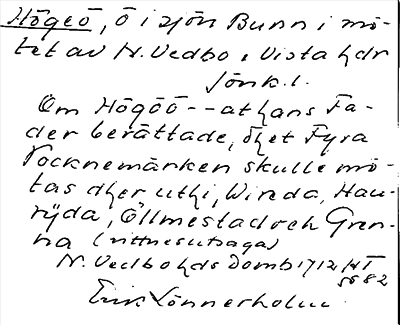 Högeö, ö i sjön Bunn i mö-
tet av N. Vedbo o. Vista hdr
Jönk. l.
Om Högöö -- at hans Fa-
der berättade, dhet Fyra
Socknemärken skulle mö-
tas dher uthi, Wireda, Hau-
rijda, Öllmestad och Gren-
na (vittnesutsaga)
N. Vedbo hds Domb 1712 HT
§§ 82
Erik Lönnerholm